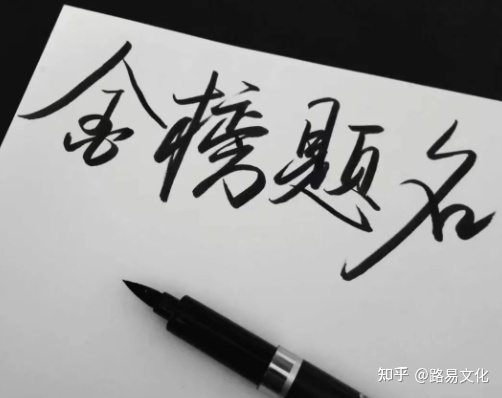 金榜题名
知乎 @路易文化